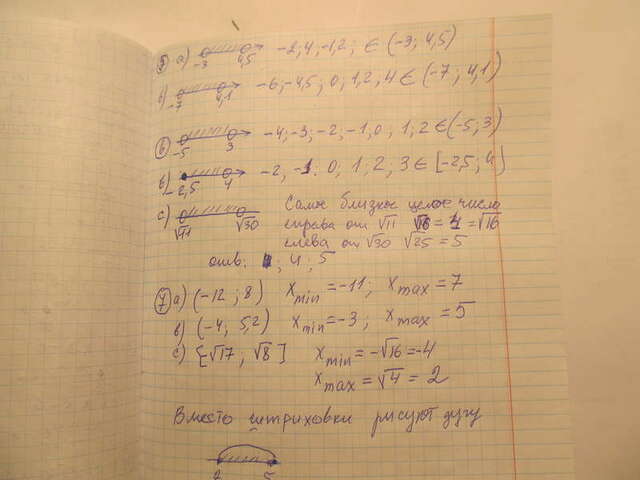 5 a) -3 4,5 -2,4; -1,2; ∈ (-3; 4,5)
-7 4,1 -6; -4,5; 0; 1,2, 4 ∈ (-7; 4,1)
6 -5 3 -4; -3; -2; -1, 0, 1, 2 ∈ (-5; 3)
b) -2,5 4 -2, -1; 0, 1, 2, 3 ∈ [-2,5; 4)
c) √11 √30 Самое близкое целое число
справа от √11 = 4 = √16
слева от √30 √25 = 5
отв: 4; 5
7 a) (-12; 8) x min = -11; x max = 7
b) (-4, 5,2) x min = -3; x max = 5
c) [√17, √8] x min = -√16 = -4
x max = √4 = 2
Вместо штриховки рисуют дугу